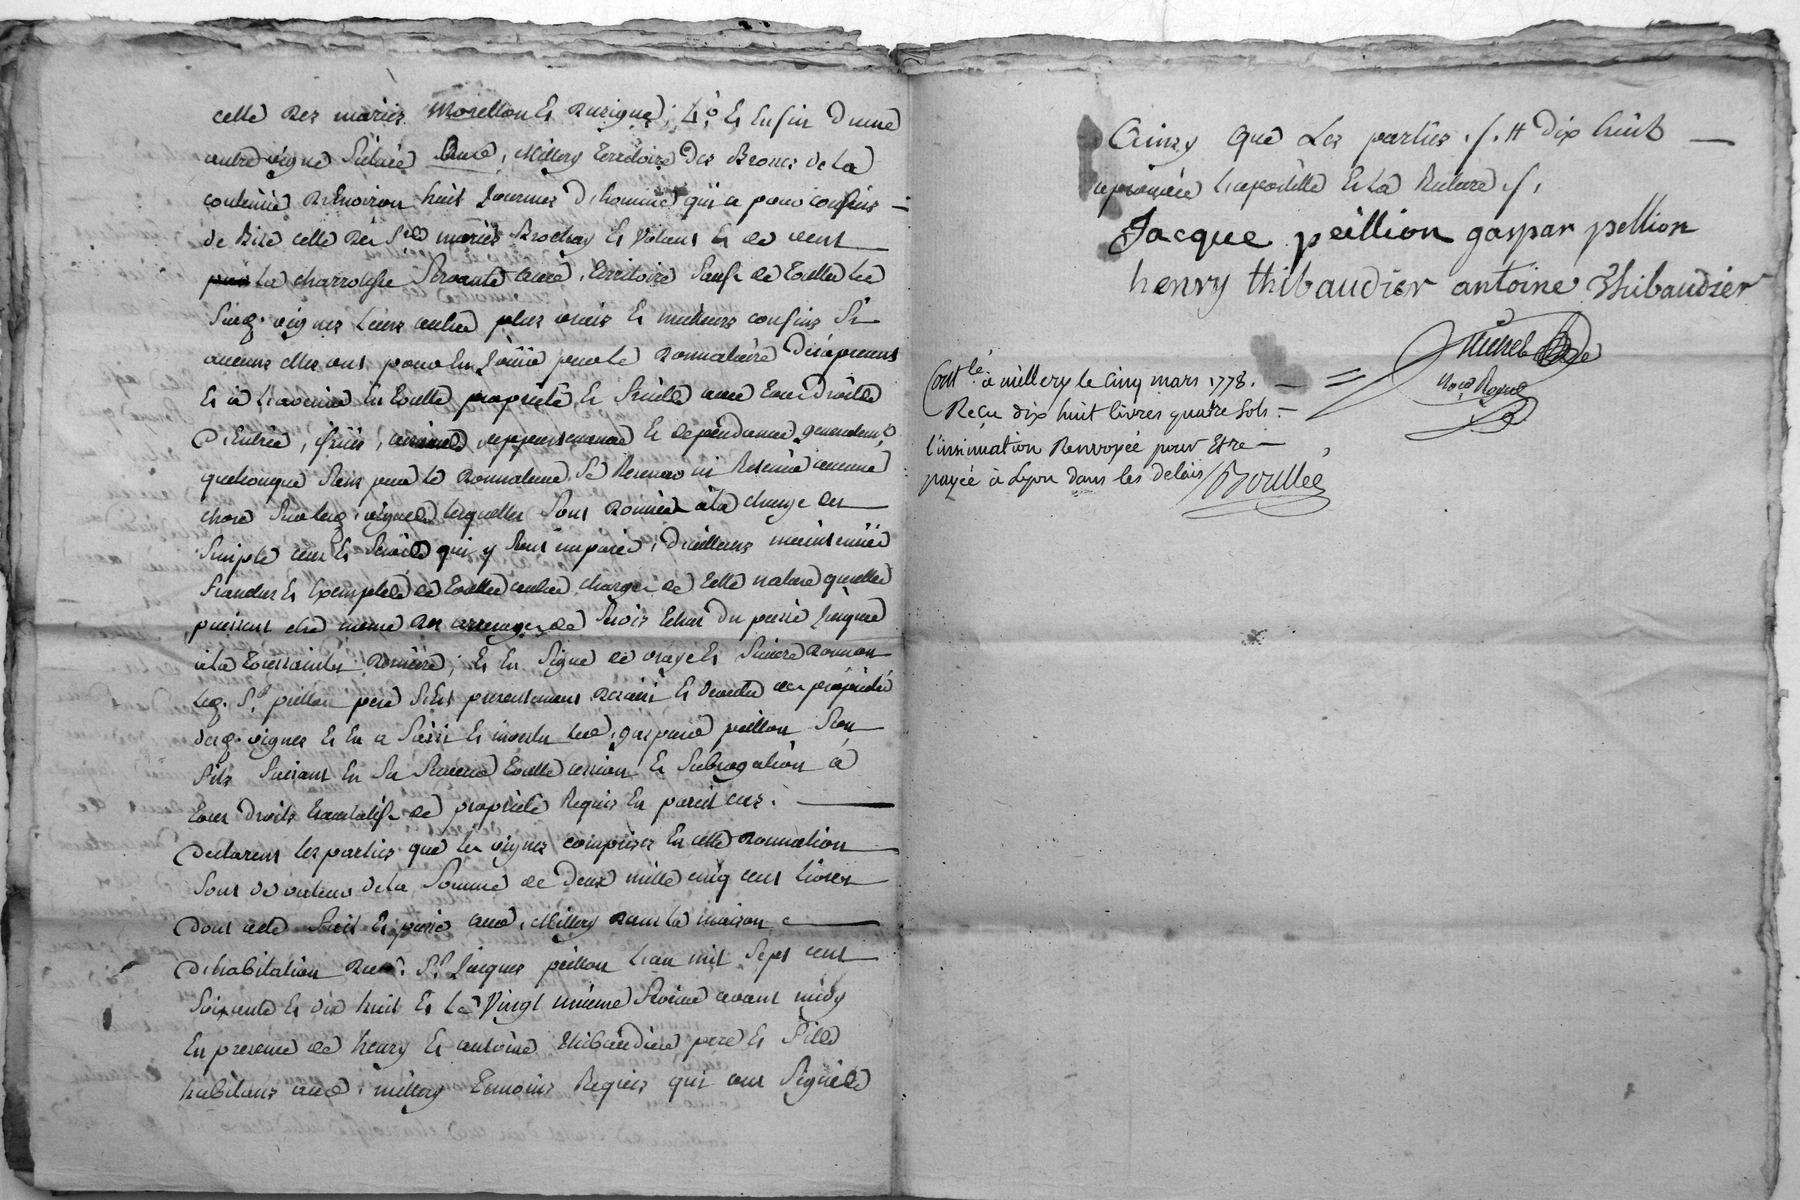 celle des mariés Morellon et Durique; 4.º et enfin d'une
autre vigne située aud. Millery territoire des Brones de la
contenue d'environ huit journées d'homme qui a pour confins
de bize celle des S.rs mariés Brochay et Volant et de vent
la charrotesse servante aud. territoire sauf de toutes les
susd. vignes leurs autres plus vrais et meilleurs confins si
aucuns elles ont pour en jouir par le donnataire dès à present
et à l'avenir en toute proprieté et fruits avec tous droits
d'entrée, suïs, aisances, appartenances et dépendances généralem.t
quelconques sans par le donnateur se reserver ni retenir aucune
chose sur lesd. vignes lesquelles sont données à la charge des
simple cens et servis qui y sont imposés, d'ailleurs maintenues
franches et exemptes de toutes autres charges de telle nature qu'elles
puissent être même des arrerages de servis echus du passé jusques
à la toussaints derniere; et en signe de vraye et sincere donnation
led. S.r peillon pere s'est presentement demis et devetu de la proprieté
desd. vignes et en a saisi et investu led. gaspard peillon son
fils faisant en sa faveur toutte cession et subrogation à
tous droits translatifs de proprieté requis en pareil cas.
Declarent les parties que les vignes comprises en cette donnation
sont de valeur de la somme de deux mille cinq cens livres
dont acte fait et passé aud. Millery dans la maison
d'habitation dud. S.r Jacques peillon l'an mil sept cent
soixante et dix huit et le vingt unieme fevrier avant midy
En presence de henry et antoine thibaudier pere et fils
habitans aud. millery temoins requis qui ont signés
Ainsy que les parties ./. # dix huit
approuvée l'apostille et la rature ./.
Jacque peillion gaspar pellion
henry thibaudier antoine thibaudier
No.re Royal
Cont.lé à millery le cinq mars 1778.
Reçu dix huit livres quatre sols
l'insinuation Renvoyée pour Etre
payée à Lyon dans les delais Boullee